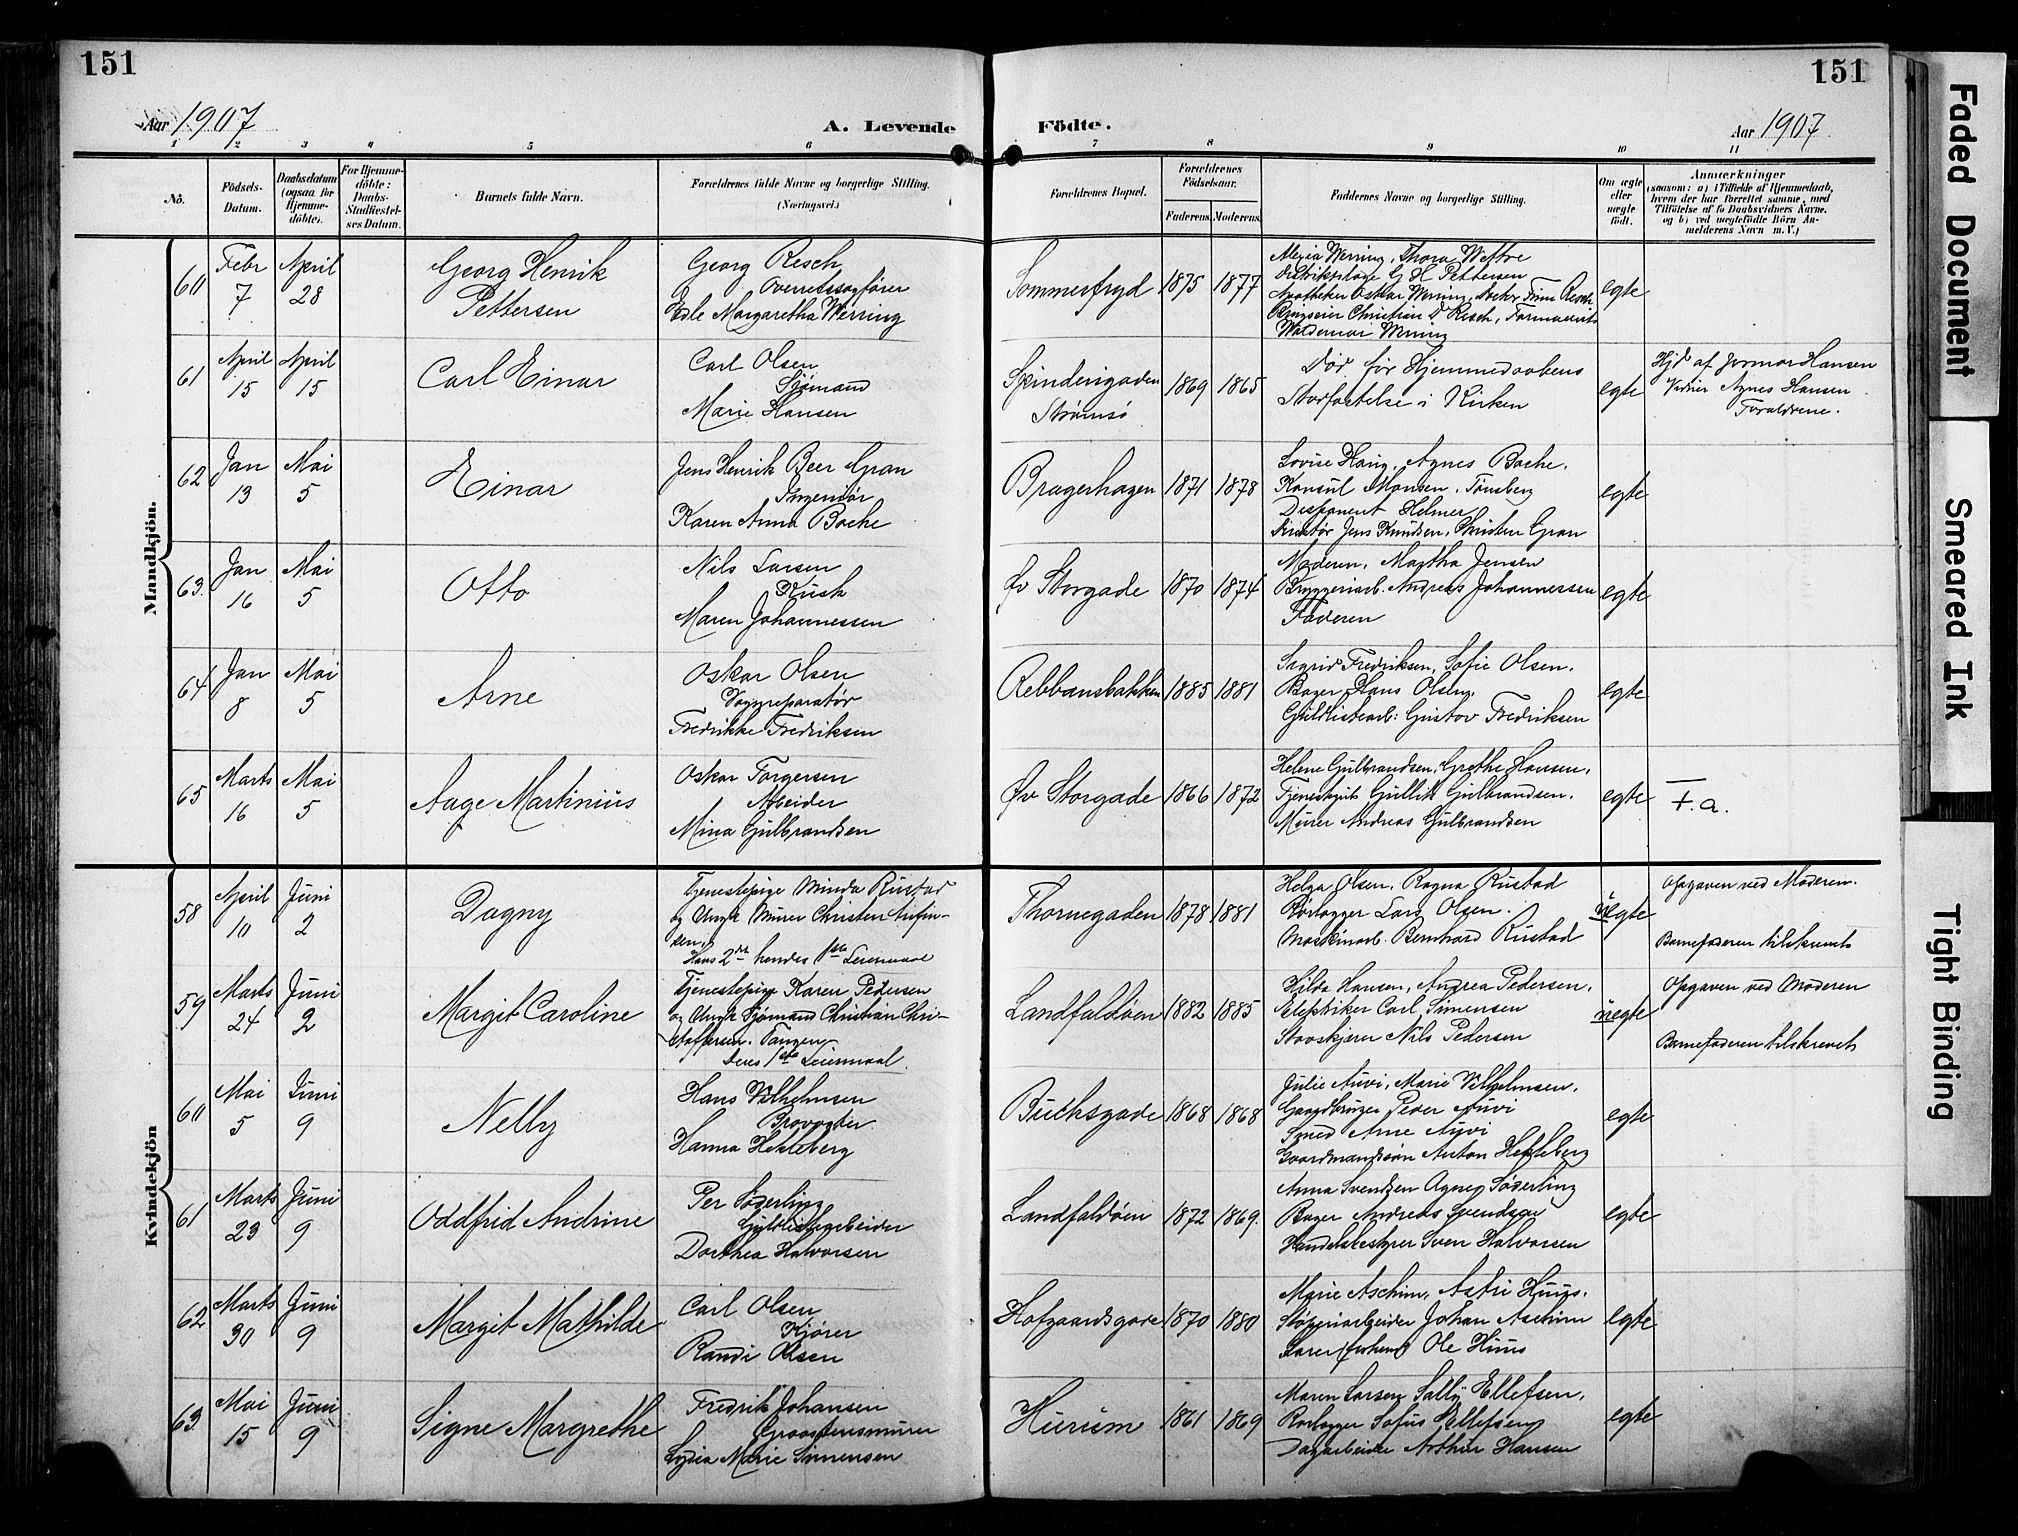 151
151
Aar 1907
A. Levende Födte.
Aar 1907.
1 2 3 4 5 6 7 8 9 10 11
No.
Födsels-Datum.
Daabsdatum (ogsaa for Hjemme-döbte).
For Hjemme-döbte: Daabs-Stadfæstel-ses Datum.
Barnets fulde Navn.
Forældrenes fulde Navne og borgerlige Stilling.
(Næringsvei.)
Forældrenes Bopæl.
Forældrenes Födselsaar.
Faderens. Moderens.
Faddernes Navne og borgerlige Stilling.
Om ægte eller uægte födt.
Anmærkninger
(saasom: a) i Tilfælde af Hjemmedaab, hvem der har forrettet samme, med Tilföielse af to Daabsvidners Navne, og b) ved uægtefödte Börn Anmelderens Navn m. V.)
Mandkjön.
60 Febr 7 April 28
Georg Henrik Pettersen
Georg Resch
Overretssagfører
Edle Margaretha Werring
Sommerfryd 1875 1877
Thora Wettre
Distriktslæge G H Pettersen
Apotheker Oskar Werring, Finn Resch
Christian D Resch,
Waldemar Werring
egte
61 April 15 April 15
Carl Einar
Carl Olsen
Sjømand
Marie Hansen
Strømsø
1869 1865
Død før Hjemmedaabens
Stadfæstelse i Kirken
egte
Hjd af Hansen
Vidner Agnes Hansen
Forældrene.
62 Jan 13 Mai 5
Einar
Jens Henrik Beer Gran
Ingeniør
Karen Anna Bache
Bragerhagen 1871 1878
Lovise Haug, Agnes Bache,
Konsul Monsen, Tønsberg
Disponent Helmer
Direktør Jens Knudsen, Christen Gran
egte
63. Jan 16 Mai 5
Otto
Nils Larsen
Kusk
Maren Johannessen
Øv Storgade 1870 1874
Moderen, Martha Jensen
Bryggeriarb. Andreas Johannessen
Faderen
egte
64 Jan 8 Mai 5
Arne
Oskar Olsen
Fredrikke Fredriksen
Rebbansbakken 1885 1881
Sigrid Fredriksen, Sofie Olsen,
Bager Hans Olsen,
Guldlistearb: Gustav Fredriksen
egte
65 Marts 16 Mai 5
Aage Martinius
Oskar Torgersen
Arbeider
Mina Gulbrandsen
Øv Storgade 1866 1872
Helene Gulbrandsen, Grethe Hansen,
Gullik Gulbrandsen,
Murer Andreas Gulbrandsen
egte
F. a.
Kvindekjön
58 April 10 Juni 2
Dagny
Tjenestepige Minda Rustad
og Ungk Murer Christen
Hans 2det hendes 1ste Leiermaal
Thornegaden 1878 1881
Helga Olsen, Ragna Rustad
Rørlægger Lars Olsen.
Maskinarb. Bernhard Rustad
uegte
Opgaven ved Moderen.
Barnefaderen tilskrevet
59 Marts 24 Juni 2
Margit Caroline
Tjenestepige Karen Pedersen
og Ungk Sjømand Christian Chri-
stoffersen. Tangen
Deres 1ste Leiermaal
Landfaldøen 1882 1885
Hilda Hansen, Andrea Pedersen,
Carl Simensen
Stavskjærer Nils Pedersen
uegte
Opgaven ved Moderen
Barnefaderen tilskrevet
60 Mai 5 Juni 9
Nelly
Hans Vilhelmsen
Brovogter
Hanna Hekleberg
Buchsgade 1868 1868
Julie Auvi, Marie Vilhelmsen,
Gaardbruger Peder Auvi
Smed Arne Auvi
Gaardmandssøn Anton Hekleberg
egte
61 Marts 23 Juni 9
Oddfrid Andrine
Per Søderling
Guldlistearbeider
Dorthea Halvorsen
Landfaldøen 1872 1869.
Anna Svendsen Agnes Søderling
Bager Andreas Svendsen
Handelsbestyrer Sven Halvorsen
egte
62 Marts 30 Juni 9
Margit Mathilde
Carl Olsen
Kjører
Randi Olsen
Hofgaardsgade 1870 1880
Marie Aschim, Astri Huus.
Johan Aschim
Ole Huus
egte
63. Mai 15 Juni 9
Signe Margrethe
Fredrik Johansen
Graastensmurer
Lydia Marie Simensen
Hurum 1861 1869
Maren Larsen, Sally Ellefsen,
Rørlægger Sofus Ellefsen
Dagarbeider Arthur Hansen
egte
Faded Document
Smeared Ink
Tight Binding